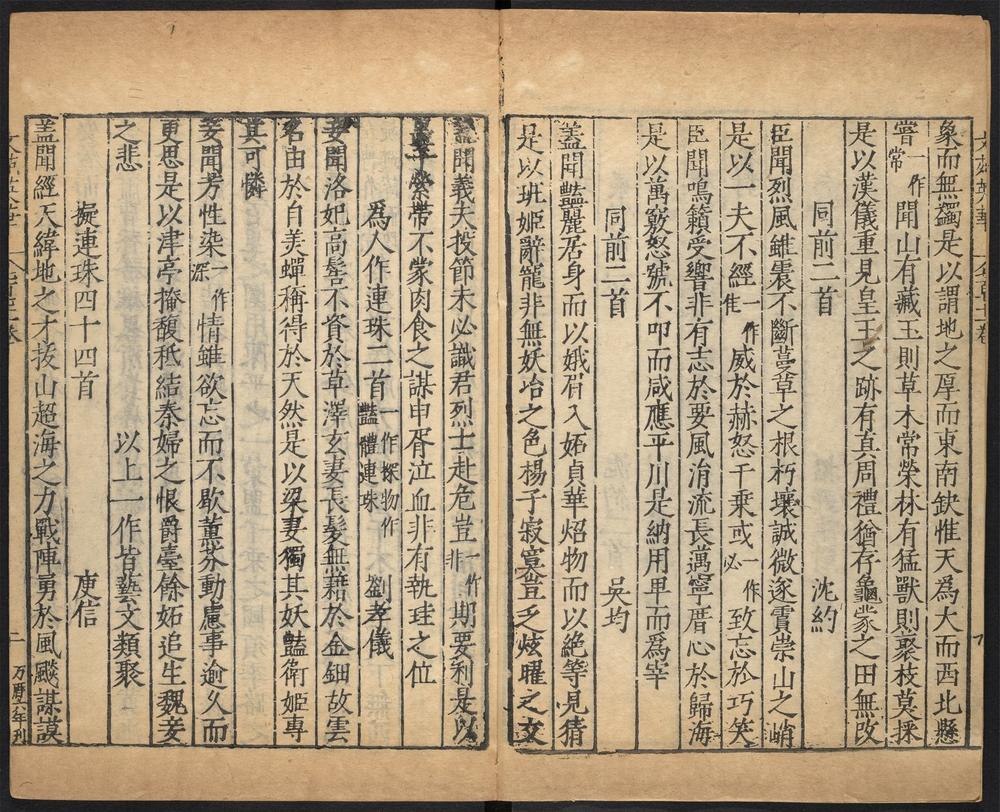 象而無蠲是以謂地之厚而東南缺惟天為大而西北懸
嘗一作常聞山有藏玉則草木常榮林有猛獸則聚枝莫採
是以漢儀重見皇王之跡有真周禮猶存龜蒙之田無改
同前二首 沈約
臣聞烈風雖震不斷蔓草之根朽壤誠微遂霣崇山之峭
是以一夫不經一作隹威於赫怒千乗或一作必致忘於巧笑
臣聞鳴籟受響非有志於要風涓流長邁寧厝心於歸海
是以萬竅怒號不叩而咸應平川是納用卑而為宰
同前二首 吳均
蓋聞豔麗居身而以娥眉入妬貞華炤物而以絶等見猜
是以班姬辭寵非無妖冶之色楊子寂寞豈乏炫曜之文
蓋聞義夫投節未必識君烈士赴危豈一作非期要利是以
墨翟縈帶不蒙肉食之謀申胥泣血非有執珪之位
為人作連珠二首一作探物作豔體連珠 劉孝儀
妾聞洛妃高髻不資於草澤玄妻長髮無藉於金鈿故雲
名由於自美蟬稱得於天然是以梁妻獨其妖豔衛姬專
其可憐
妾聞芳性染一作深情雖欲忘而不歇薰芬動慮事逾久而
更思是以津亭掩馥秪結秦婦之恨爵臺餘妬追生魏妾
之悲 以上一作皆藝文類聚
擬連珠四十四首 庾信
蓋聞經天緯地之才拔山超海之力戰陣勇於風飈謀謨
二 万曆六年刋